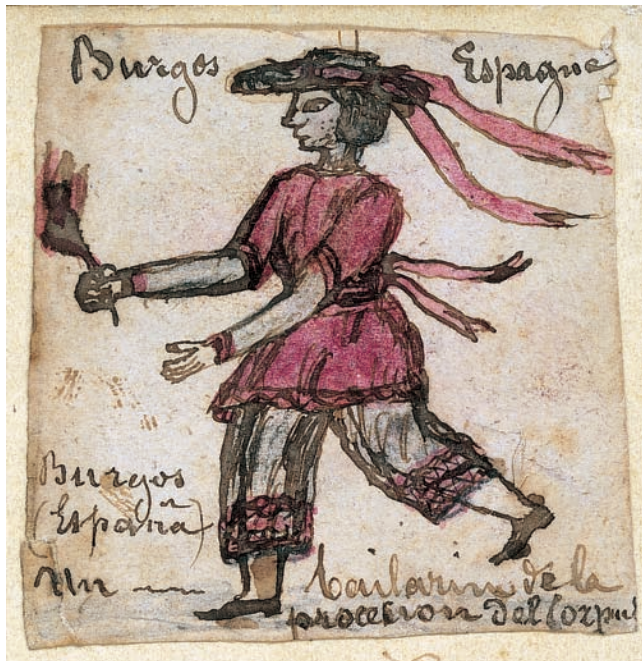 Burgos Espagne
Burgos
(España)
Un bailarin de la
procesion del Corpus